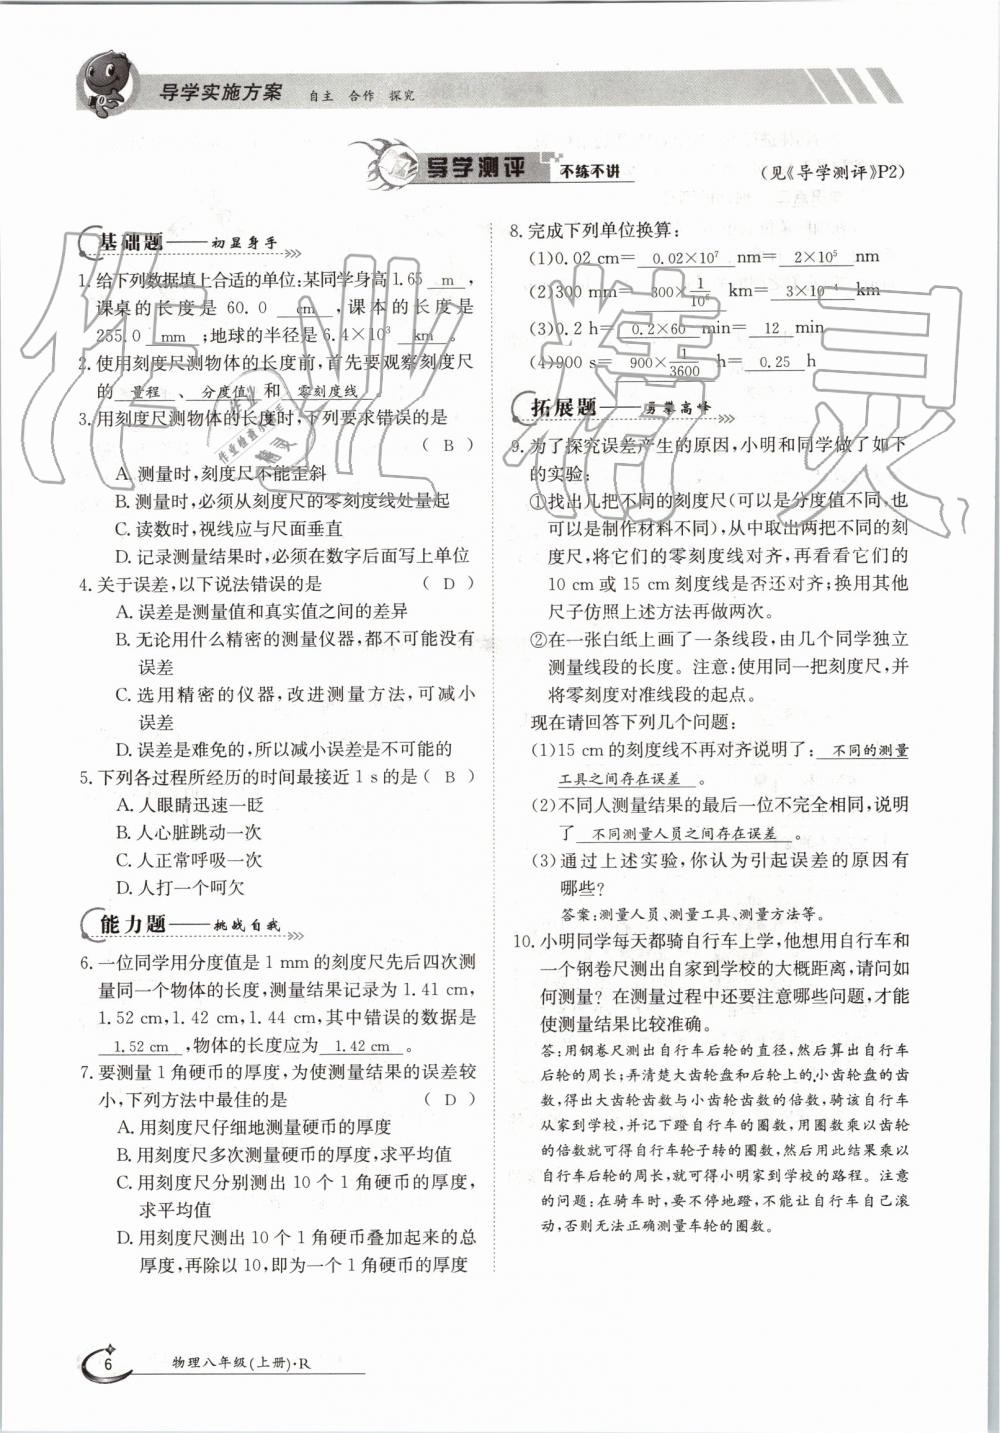 导学实施方案 自主 合作 探究
导学测评 不练不讲
(见《导学测评》P2)
基础题——初显身手
1. 给下列数据填上合适的单位:某同学身高1.65 m ,
课桌的长度是 60.0 cm ,课本的长度是
255.0 mm ;地球的半径是 6.4×10³ km 。
2. 使用刻度尺测物体的长度前,首先要观察刻度尺
的 量程 、 分度值 和 零刻度线 。
3. 用刻度尺测物体的长度时,下列要求错误的是
( B )
A. 测量时,刻度尺不能歪斜
B. 测量时,必须从刻度尺的零刻度线处量起
C. 读数时,视线应与尺面垂直
D. 记录测量结果时,必须在数字后面写上单位
4. 关于误差,以下说法错误的是 ( D )
A. 误差是测量值和真实值之间的差异
B. 无论用什么精密的测量仪器,都不可能没有
误差
C. 选用精密的仪器,改进测量方法,可减小
误差
D. 误差是难免的,所以减小误差是不可能的
5. 下列各过程所经历的时间最接近 1 s 的是( B )
A. 人眼睛迅速一眨
B. 人心脏跳动一次
C. 人正常呼吸一次
D. 人打一个呵欠
能力题——挑战自我
6. 一位同学用分度值是 1 mm 的刻度尺先后四次测
量同一个物体的长度,测量结果记录为 1.41 cm,
1.52 cm,1.42 cm,1.44 cm,其中错误的数据是
1.52 cm ,物体的长度应为 1.42 cm 。
7. 要测量 1 角硬币的厚度,为使测量结果的误差较
小,下列方法中最佳的是 ( D )
A. 用刻度尺仔细地测量硬币的厚度
B. 用刻度尺多次测量硬币的厚度,求平均值
C. 用刻度尺分别测出 10 个 1 角硬币的厚度,
求平均值
D. 用刻度尺测出 10 个 1 角硬币叠加起来的总
厚度,再除以 10,即为一个 1 角硬币的厚度
8. 完成下列单位换算:
(1)0.02 cm= 0.02×10⁷ nm= 2×10⁵ nm
(2)300 mm= 300×1/10⁶ km= 3×10⁻⁴ km
(3)0.2 h= 0.2×60 min= 12 min
(4)900 s= 900×1/3600 h= 0.25 h
拓展题——勇攀高峰
9. 为了探究误差产生的原因,小明和同学做了如下
的实验:
①找出几把不同的刻度尺(可以是分度值不同,也
可以是制作材料不同),从中取出两把不同的刻
度尺,将它们的零刻度线对齐,再看看它们的
10 cm 或 15 cm 刻度线是否还对齐;换用其他
尺子仿照上述方法再做两次。
②在一张白纸上画了一条线段,由几个同学独立
测量线段的长度。注意:使用同一把刻度尺,并
将零刻度对准线段的起点。
现在请回答下列几个问题:
(1)15 cm 的刻度线不再对齐说明了: 不同的测量
工具之间存在误差 。
(2)不同人测量结果的最后一位不完全相同,说明
了 不同测量人员之间存在误差 。
(3)通过上述实验,你认为引起误差的原因有
哪些?
答案:测量人员、测量工具、测量方法等。
10. 小明同学每天都骑自行车上学,他想用自行车和
一个钢卷尺测出自家到学校的大概距离,请问如
何测量? 在测量过程中还要注意哪些问题,才能
使测量结果比较准确。
答:用钢卷尺测出自行车后轮的直径,然后算出自行车
后轮的周长;弄清楚大齿轮盘和后轮上的小齿轮盘的齿
数,得出大齿轮齿数与小齿轮齿数的倍数,骑该自行车
从家到学校,并记下蹬自行车的圈数,用圈数乘以齿轮
的倍数就可得自行车轮子转的圈数,然后用此结果乘以
自行车后轮的周长,就可得小明家到学校的路程。注意
的问题:在骑车时,要不停地蹬,不能让自行车自己滚
动,否则无法正确测量车轮的圈数。
6 物理八年级(上册)·R
作业精灵